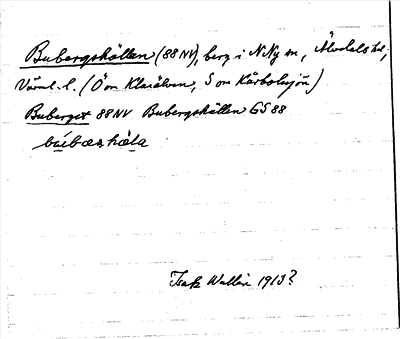 Bubergskällen (88 NV), berg i N Ny sn, Älvdals hd,
Värml. l. (Ö om Klarälven, S om Kårbolssjön)
Buberget 88 NV Bubergskällen GS 88
Isak Wallin 1913?